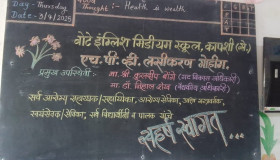 Day - Thursday
Date - 3/7/2025
Thought :- Health is wealth
बोटे इंग्लिश मिडीयम स्कूल, कापशी (से.)
एच. पी. व्ही. लसीकरण
प्रमुख उपस्थिती :-
मा. श्री कुलदीप बोंगे (गट विकास अधिकारी)
मा. डॉ. (वैद्यकीय अधिकारी)
सर्व आरोग्य सहाय्यक / सहाय्यिका, आरोग्य सेविका, आशा
स्वयंसेवक / सेविका, सर्व विद्यार्थीनी व पालक यांचे
सहर्ष स्वागत...